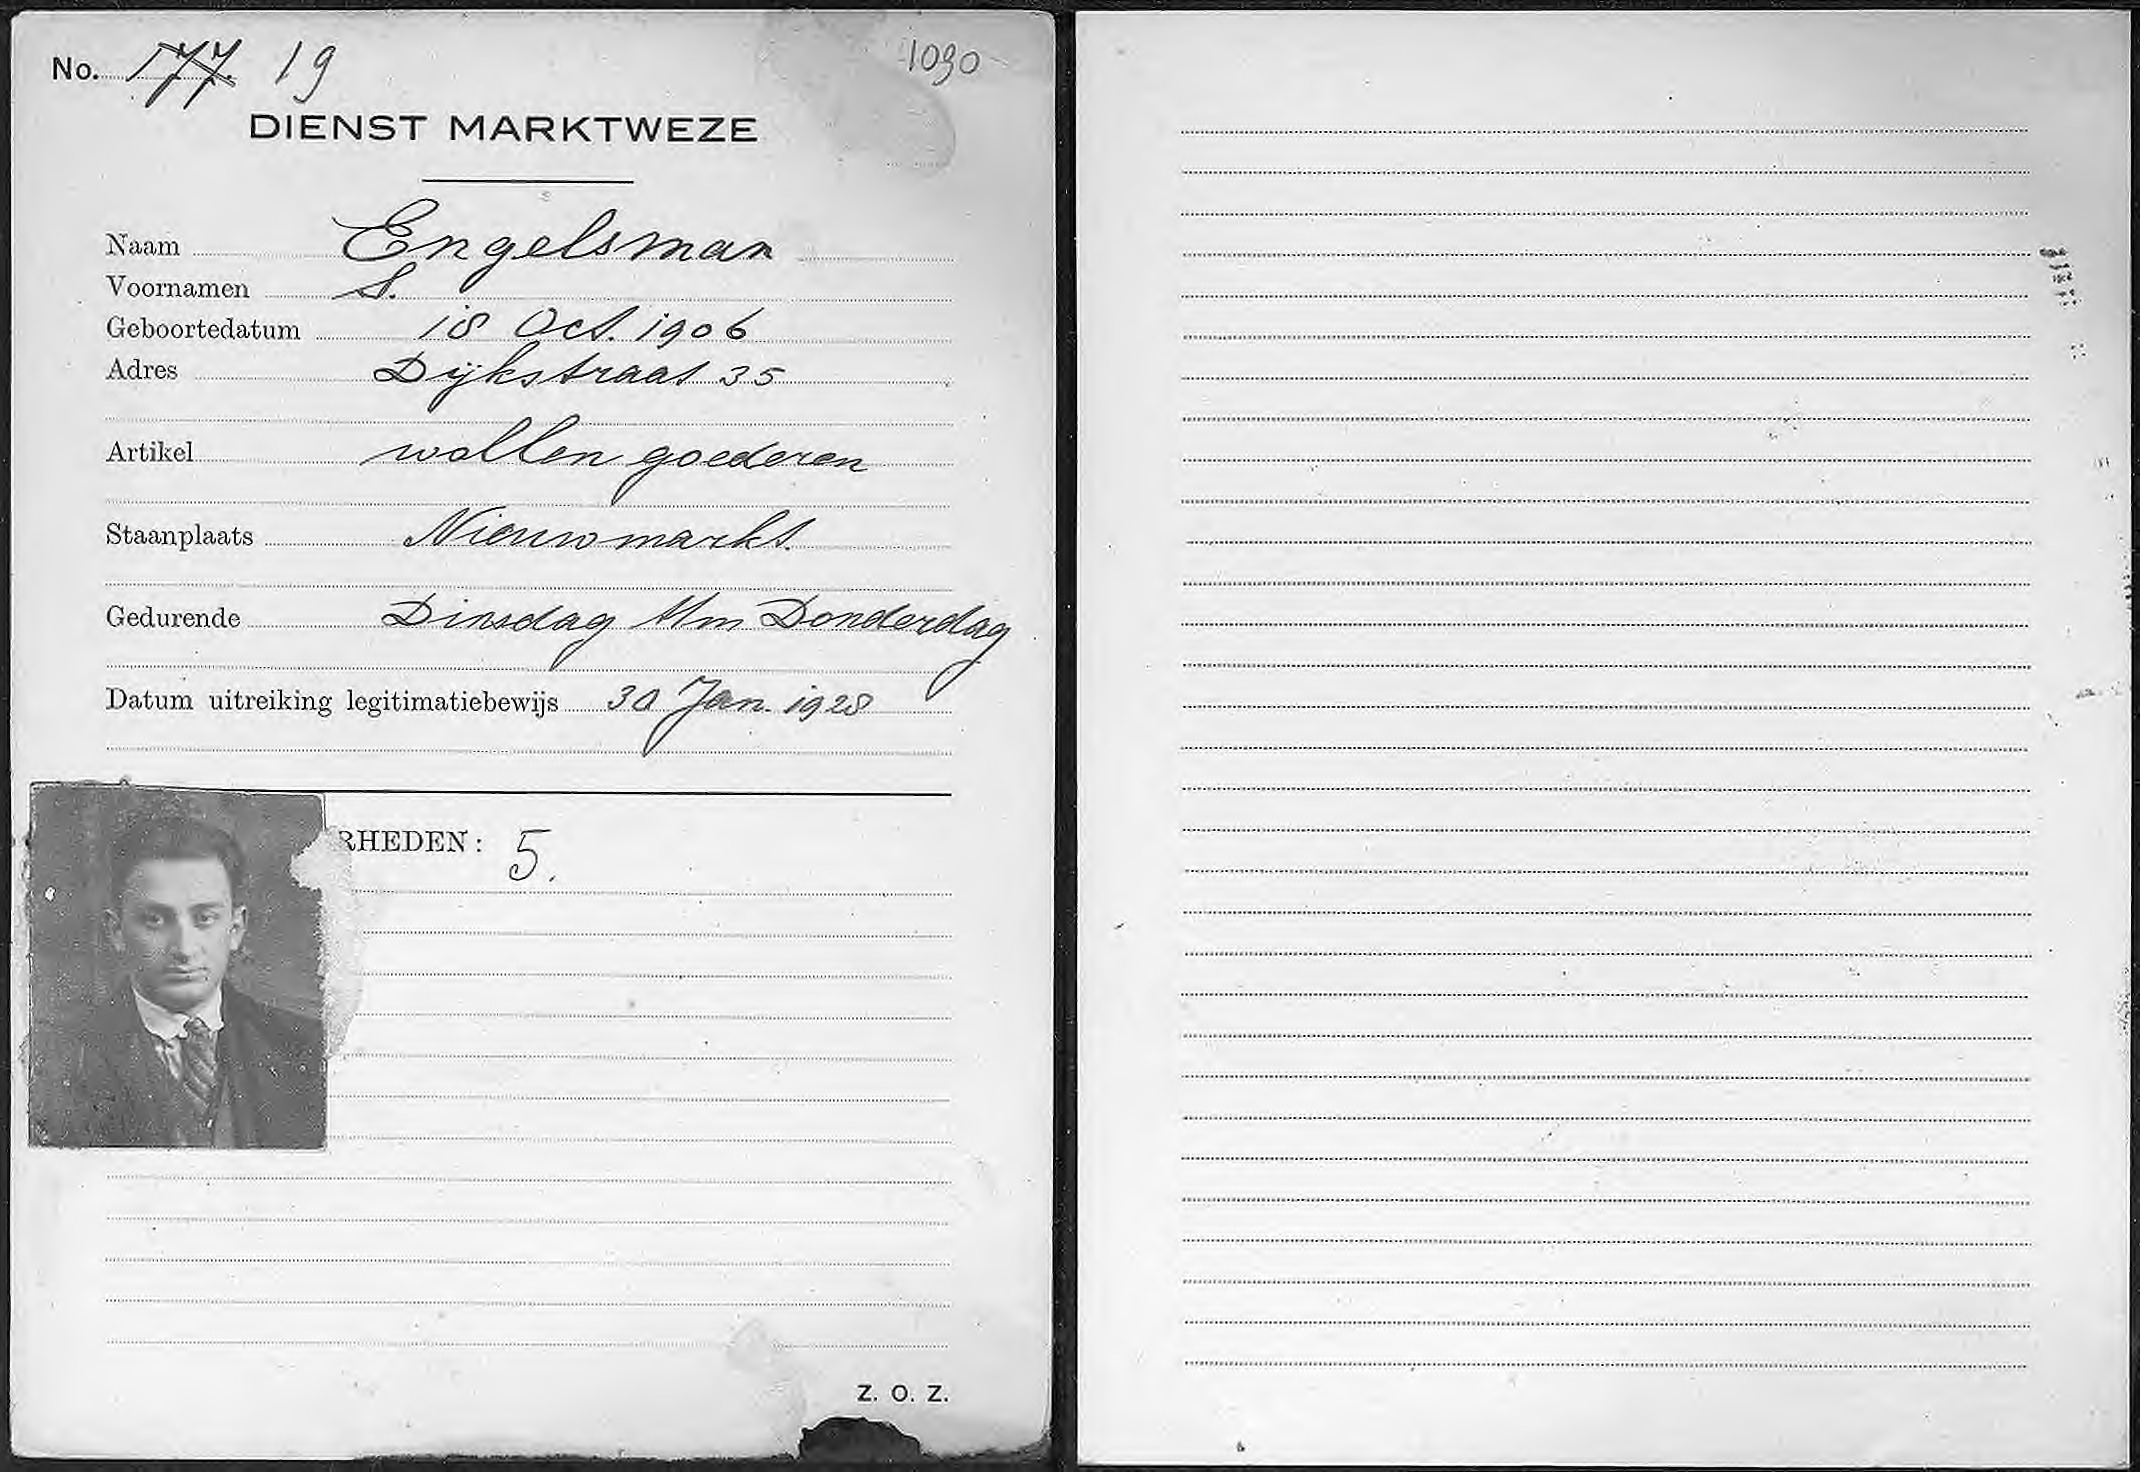 No. 177 19
1090
DIENST MARKTWEZE
Naam Engelsman
Voornamen S.
Geboortedatum 18 Oct. 1906
Adres Dijkstraat 35
Artikel wollen goederen
Staanplaats Nieuwmarkt.
Gedurende Dinsdag t/m Donderdag
Datum uitreiking legitimatiebewijs 30 Jan. 1928
RHEDEN: 5.
Z. O. Z.